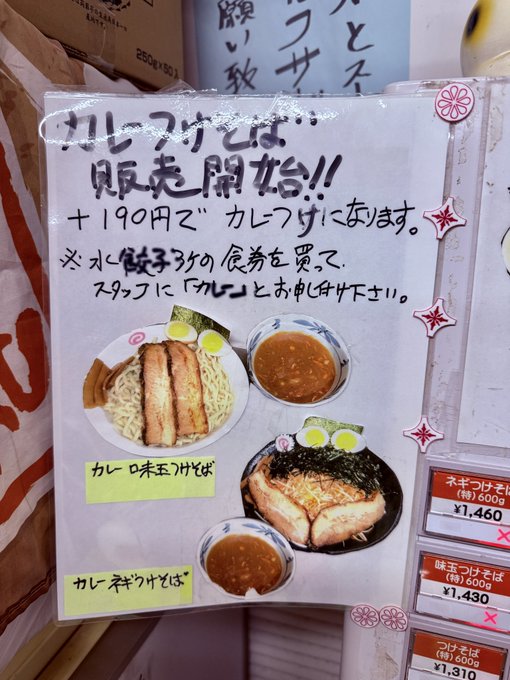 250g×50入
願い致
カレーつけそば
販売開始!!
+190円で カレーつけになります。
※水餃子3ケの食券を買って、
スタッフに「カレー」とお申し付け下さい。
カレー味玉つけそば
カレーネギつけそば
ネギつけそば
(特)600g
¥1,460
味玉つけそば
(特)600g
¥1,430
つけそば
(特)600g
¥1,310